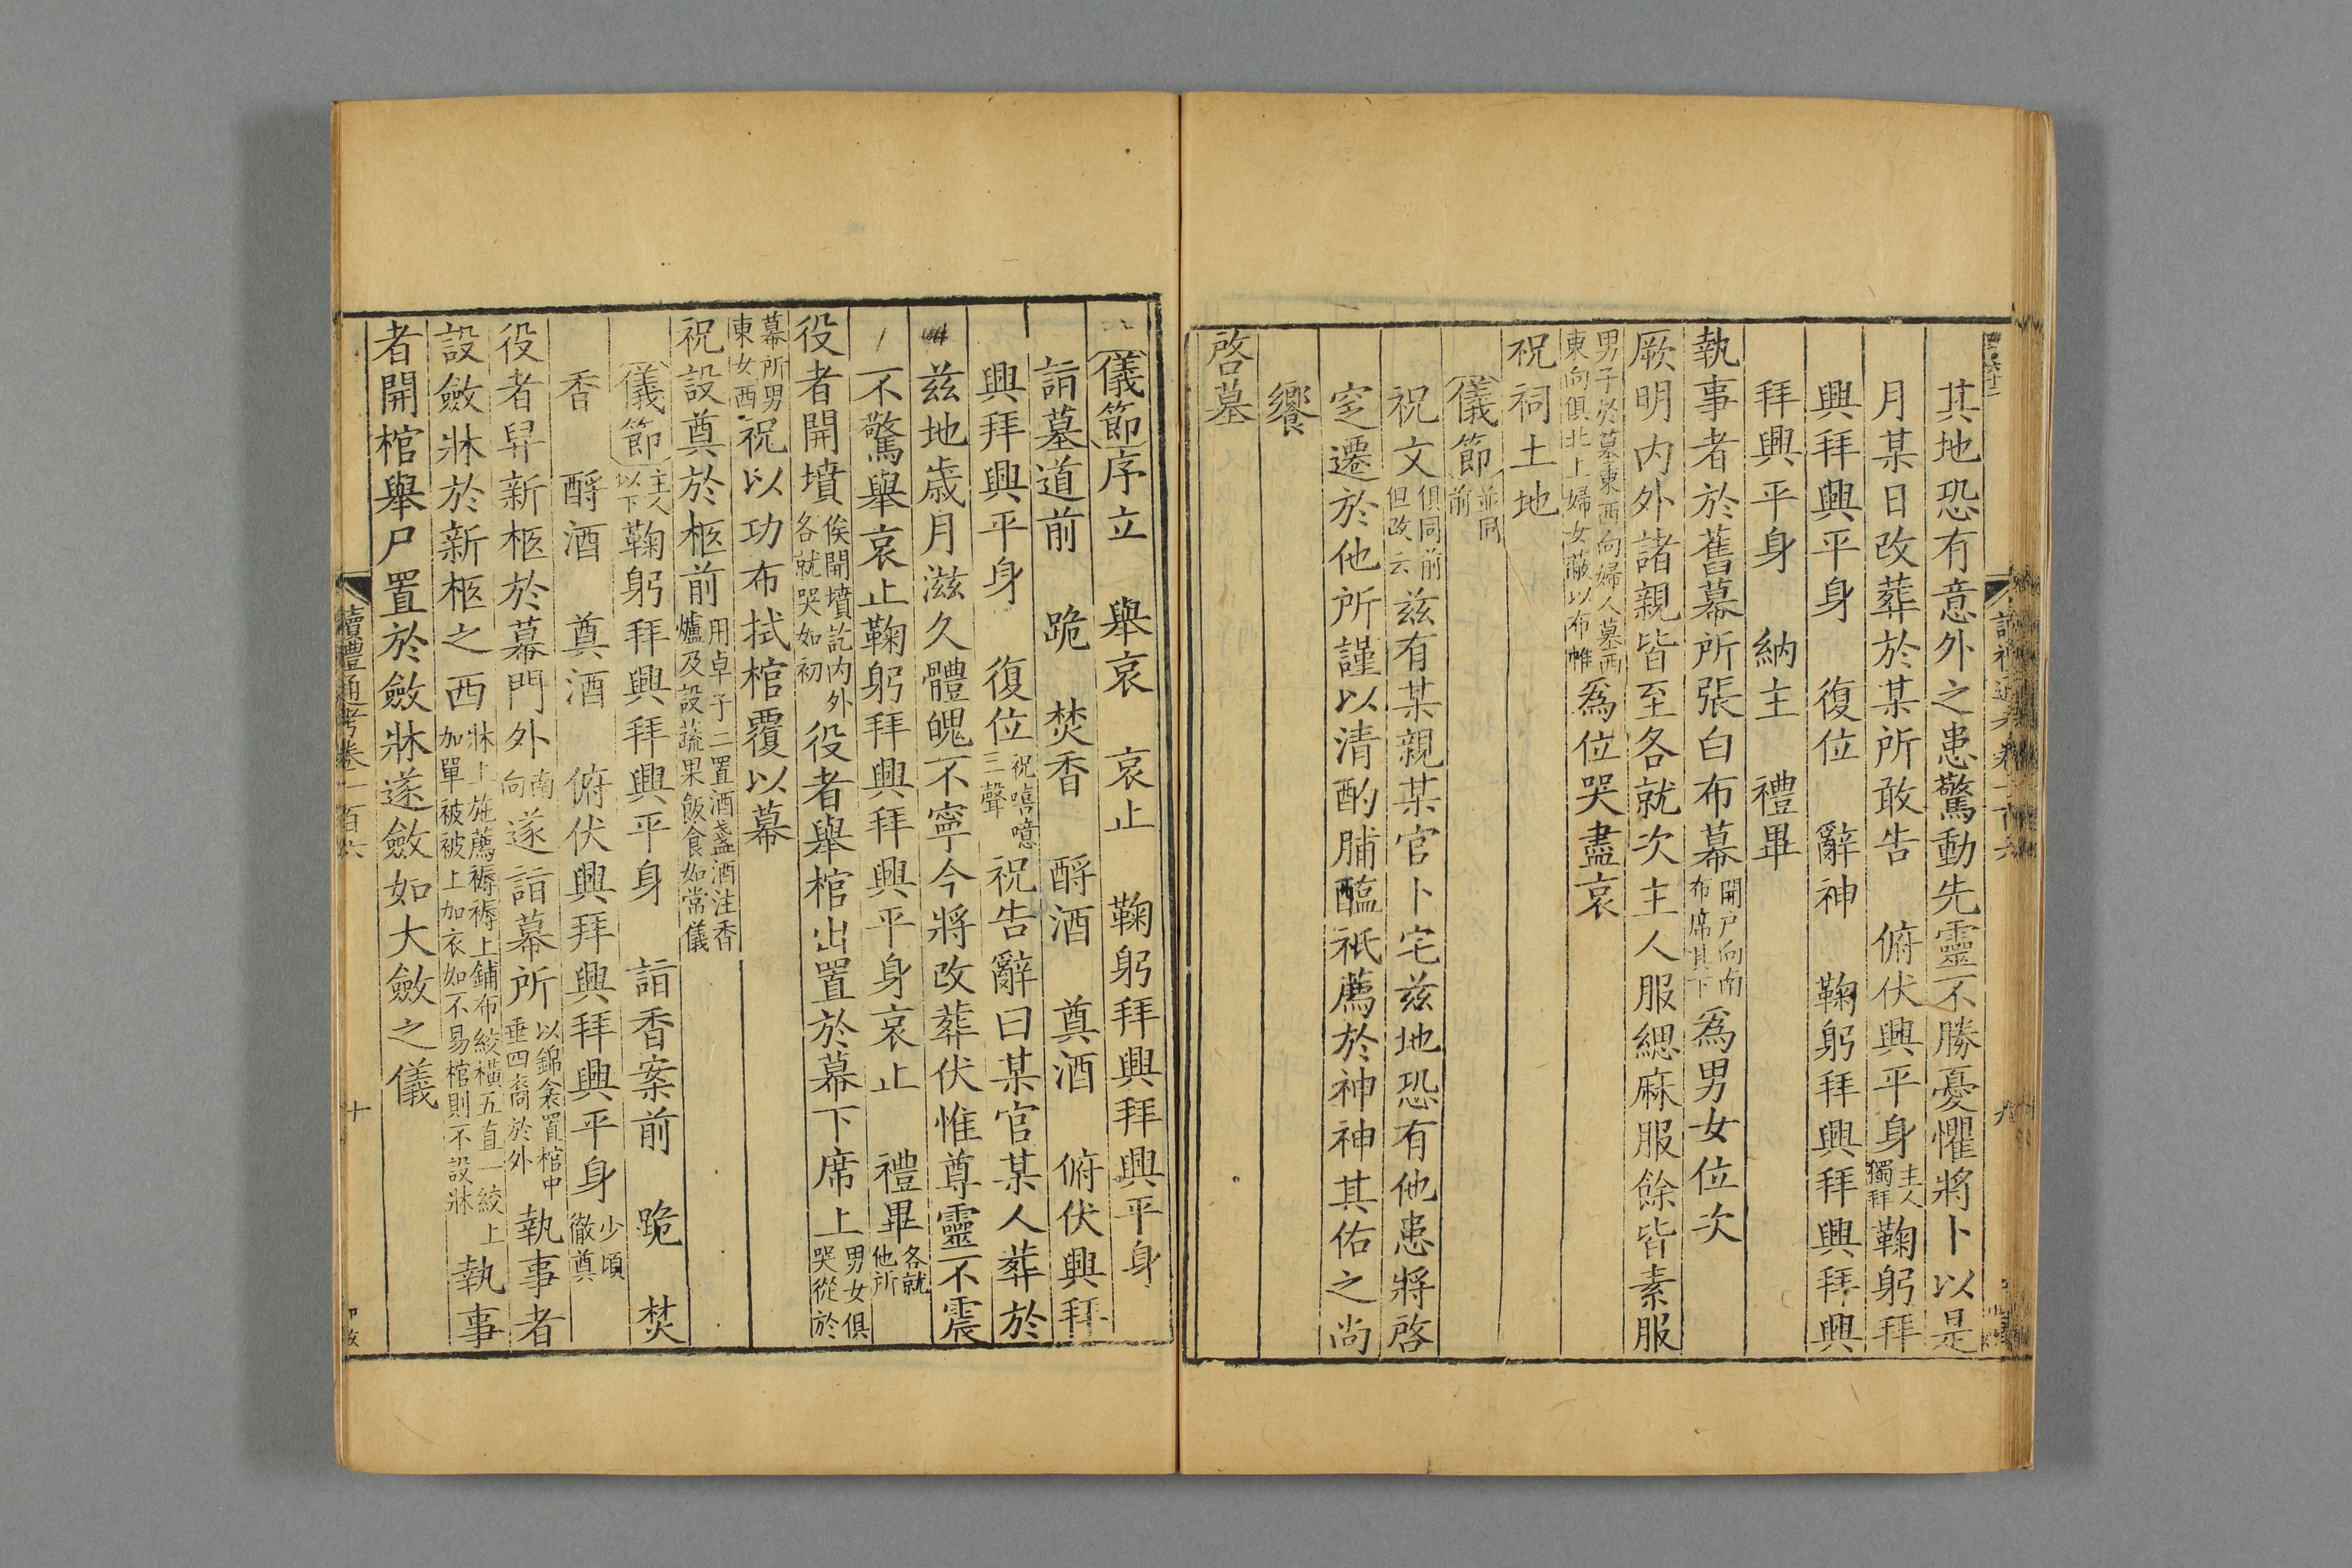 其地恐有意外之患驚動先靈不勝憂懼將卜以是
月某日改葬於某所敢告　俯伏興平身主人獨拜鞠躬拜
興拜興平身　復位　辭神　鞠躬拜興拜興拜興
拜興平身　納主　禮畢
執事者於舊墓所張白布幕開戶向南布席其下為男女位次
厥明内外諸親皆至各就次主人服緦麻服餘皆素服
男子於墓東西向婦人墓西東向俱北上婦女蔽以布帷為位哭盡哀
祝祠土地
儀節並同前
祝文俱同前但改云茲有某親某官卜宅茲地恐有他患將啓
窆遷於他所謹以清酌脯醢祗薦於神神其佑之尚
饗
啓墓
儀節序立　舉哀　哀止　鞠躬拜興拜興平身
詣墓道前　跪　焚香　酹酒　奠酒　俯伏興拜
興拜興平身　復位祝嘻噫三聲祝告辭曰某官某人葬於
茲地歲月滋久體魄不寧今將改葬伏惟尊靈不震
不驚舉哀哀止鞠躬拜興拜興平身哀止　禮畢各就他所
役者開墳俟開墳訖内外各就哭如初役者舉棺出置於幕下席上男女俱哭從於
幕所男東女西祝以功布拭棺覆以幕
祝設奠於柩前用卓子二置酒盞酒注香爐及設蔬果飯食如常儀
儀節主人以下鞠躬拜興拜興平身　詣香案前　跪　焚
香　酹酒　奠酒　俯伏興拜興拜興平身少頃徹奠
役者舁新柩於幕門外南向遂詣幕所以錦衾置棺中垂四裔於外執事者
設斂牀於新柩之西牀上施薦褥褥上鋪布絞橫五直一絞上加單被被上加衣如不易棺則不設牀執事
者開棺舉尸置於斂牀遂斂如大斂之儀
讀禮通考卷一百六
十